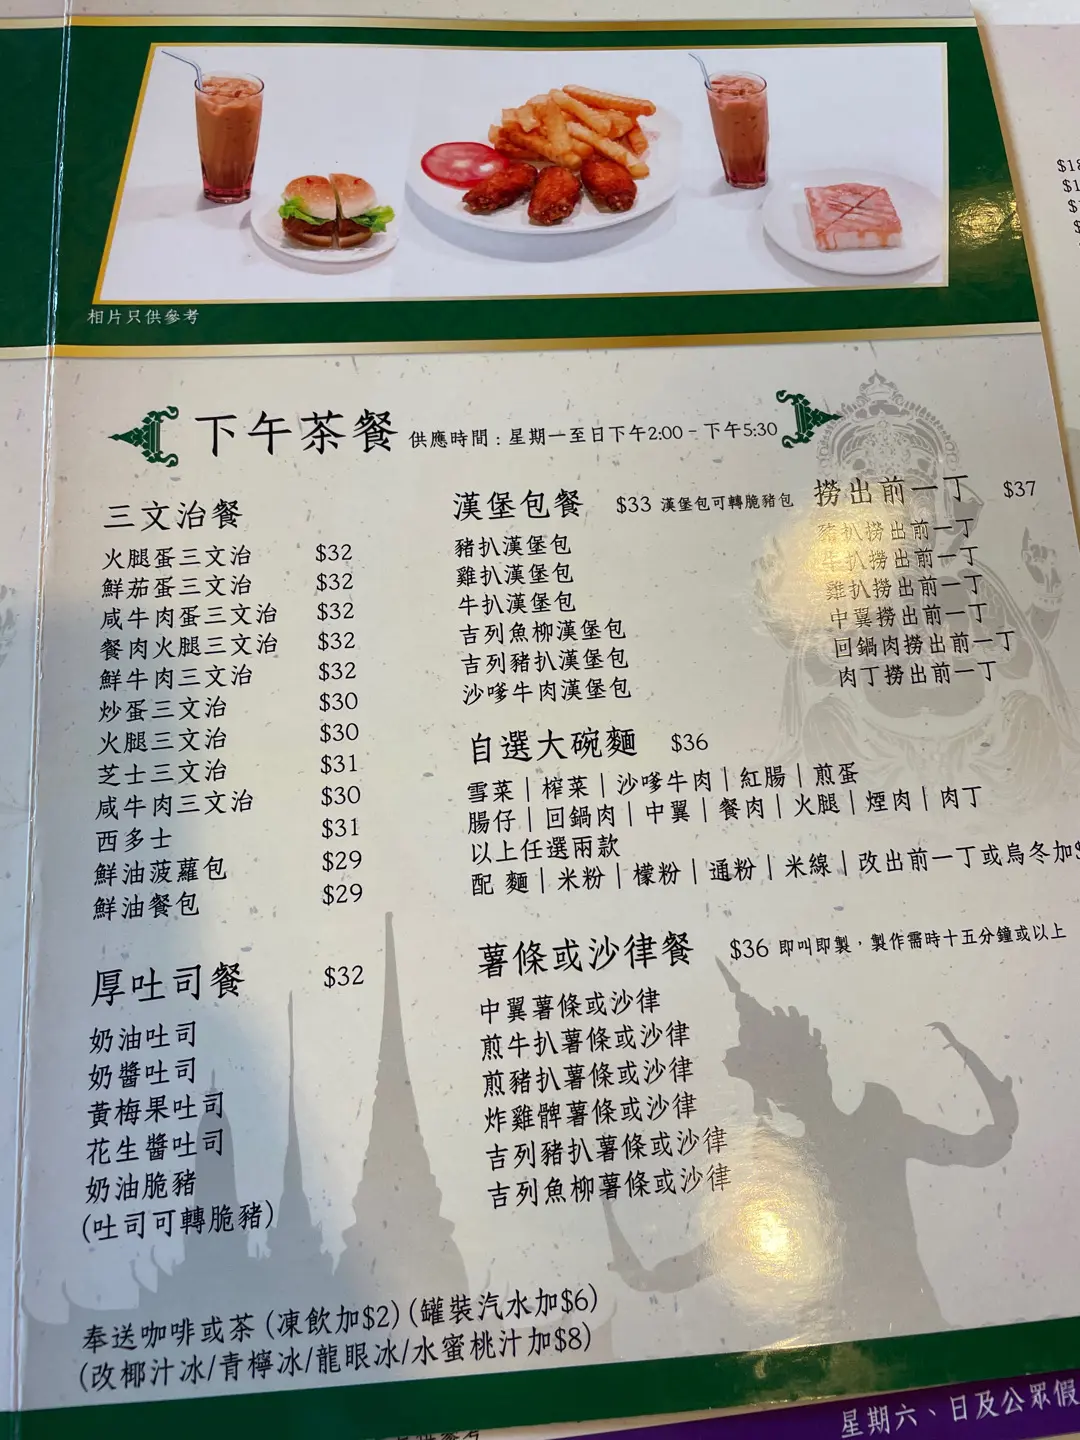 相片只供參考
下午茶餐 供應時間：星期一至日下午2:00 - 下午5:30
三文治餐
火腿蛋三文治 $32
鮮茄蛋三文治 $32
咸牛肉蛋三文治 $32
餐肉火腿三文治 $32
鮮牛肉三文治 $32
炒蛋三文治 $30
火腿三文治 $30
芝士三文治 $31
咸牛肉三文治 $30
西多士 $31
鮮油菠蘿包 $29
鮮油餐包 $29
厚吐司餐 $32
奶油吐司
奶醬吐司
黃梅果吐司
花生醬吐司
奶油脆豬
(吐司可轉脆豬)
漢堡包餐 $33 漢堡包可轉脆豬包
豬扒漢堡包
雞扒漢堡包
牛扒漢堡包
吉列魚柳漢堡包
吉列豬扒漢堡包
沙嗲牛肉漢堡包
撈出前一丁 $37
豬扒撈出前一丁
牛扒撈出前一丁
雞扒撈出前一丁
中翼撈出前一丁
回鍋肉撈出前一丁
肉丁撈出前一丁
自選大碗麵 $36
雪菜｜榨菜｜沙嗲牛肉｜紅腸｜煎蛋
腸仔｜回鍋肉｜中翼｜餐肉｜火腿｜煙肉｜肉丁
以上任選兩款
配 麵｜米粉｜檬粉｜通粉｜米線｜改出前一丁或烏冬加$
薯條或沙律餐 $36 即叫即製，製作需時十五分鐘或以上
中翼薯條或沙律
煎牛扒薯條或沙律
煎豬扒薯條或沙律
炸雞髀薯條或沙律
吉列豬扒薯條或沙律
吉列魚柳薯條或沙律
奉送咖啡或茶 (凍飲加$2) (罐裝汽水加$6)
(改椰汁冰/青檸冰/龍眼冰/水蜜桃汁加$8)
星期六、日及公眾假